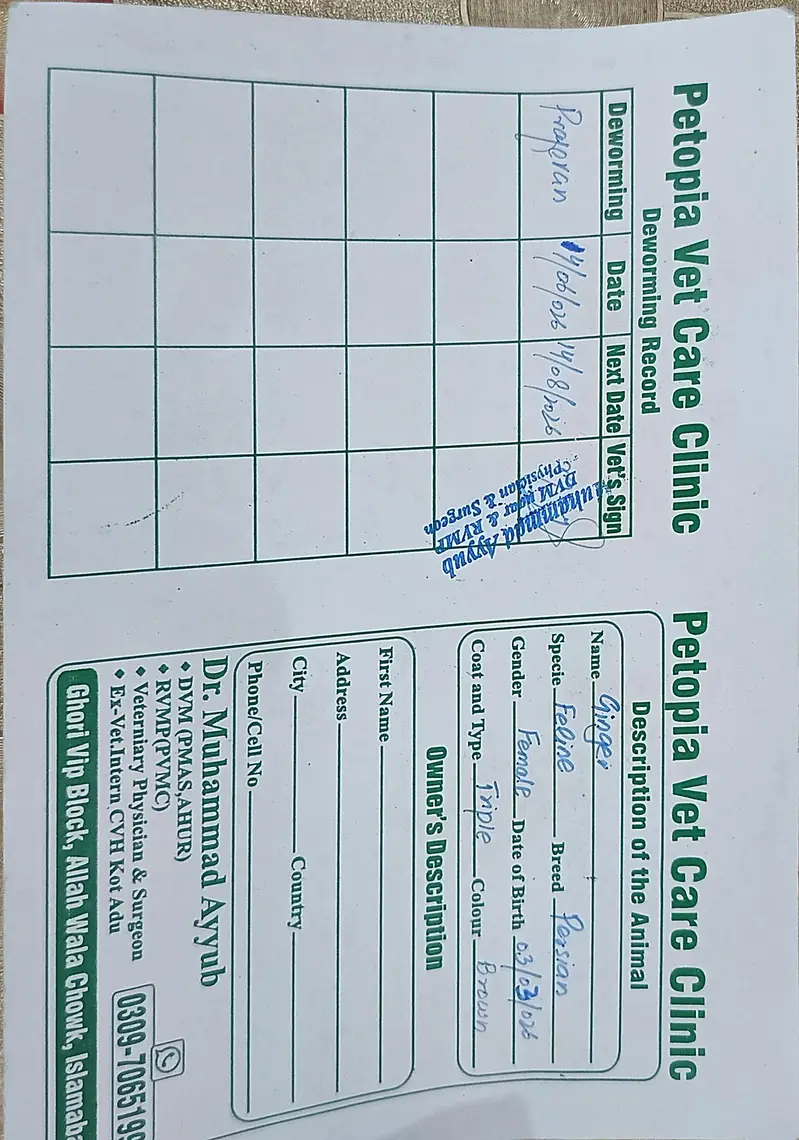 Petopia Vet Care Clinic
Deworming Record
Deworming Date Next Date Vet's Sign
Prazeran 14/06/026 14/08/2026
Muhammad Ayyub
DVM & RVMP
Physician & Surgeon
Petopia Vet Care Clinic
Description of the Animal
Name Ginger
Specie Feline Breed Persian
Gender Female Date of Birth 03/03/026
Coat and Type Triple Colour Brown
Owner's Description
First Name
Address
City Country
Phone/Cell No
Dr. Muhammad Ayyub
♦ DVM (PMAS,AHUR)
♦ RVMP(PVMC)
♦ Veterniary Physician & Surgeon
♦ Ex-Vet.Intern CVH Kot Adu
0309-7065199
Ghori Vip Block, Allah Wala Chowk, Islamaba